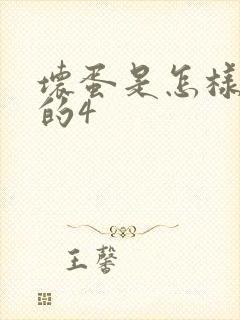 壞蛋是怎樣
的4
王馨